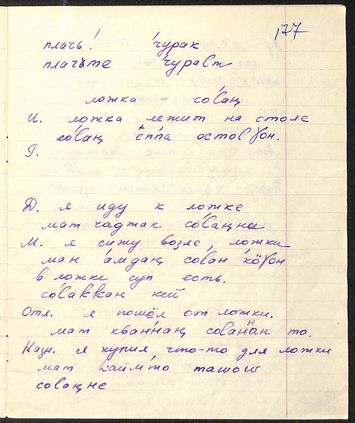 177
плачь! чурак
плачьте чуралт
ложка - со́ваӊ
И. ложка лежит на столе
со́ваӊ е́ппа остоɣон.
Р.
Д. я иду к ложке
мат чаджак со́ваӊни
М. я сижу возле ложки
ман а́мдаӊ со́ван кӧ́ɣон
в ложке суп есть.
со́ваккан кей
Отл. я пошёл от ложки.
мат ква́ннаӊ сова́нан то.
Назн. я купил что-то для ложки
мат таши
соваӊне